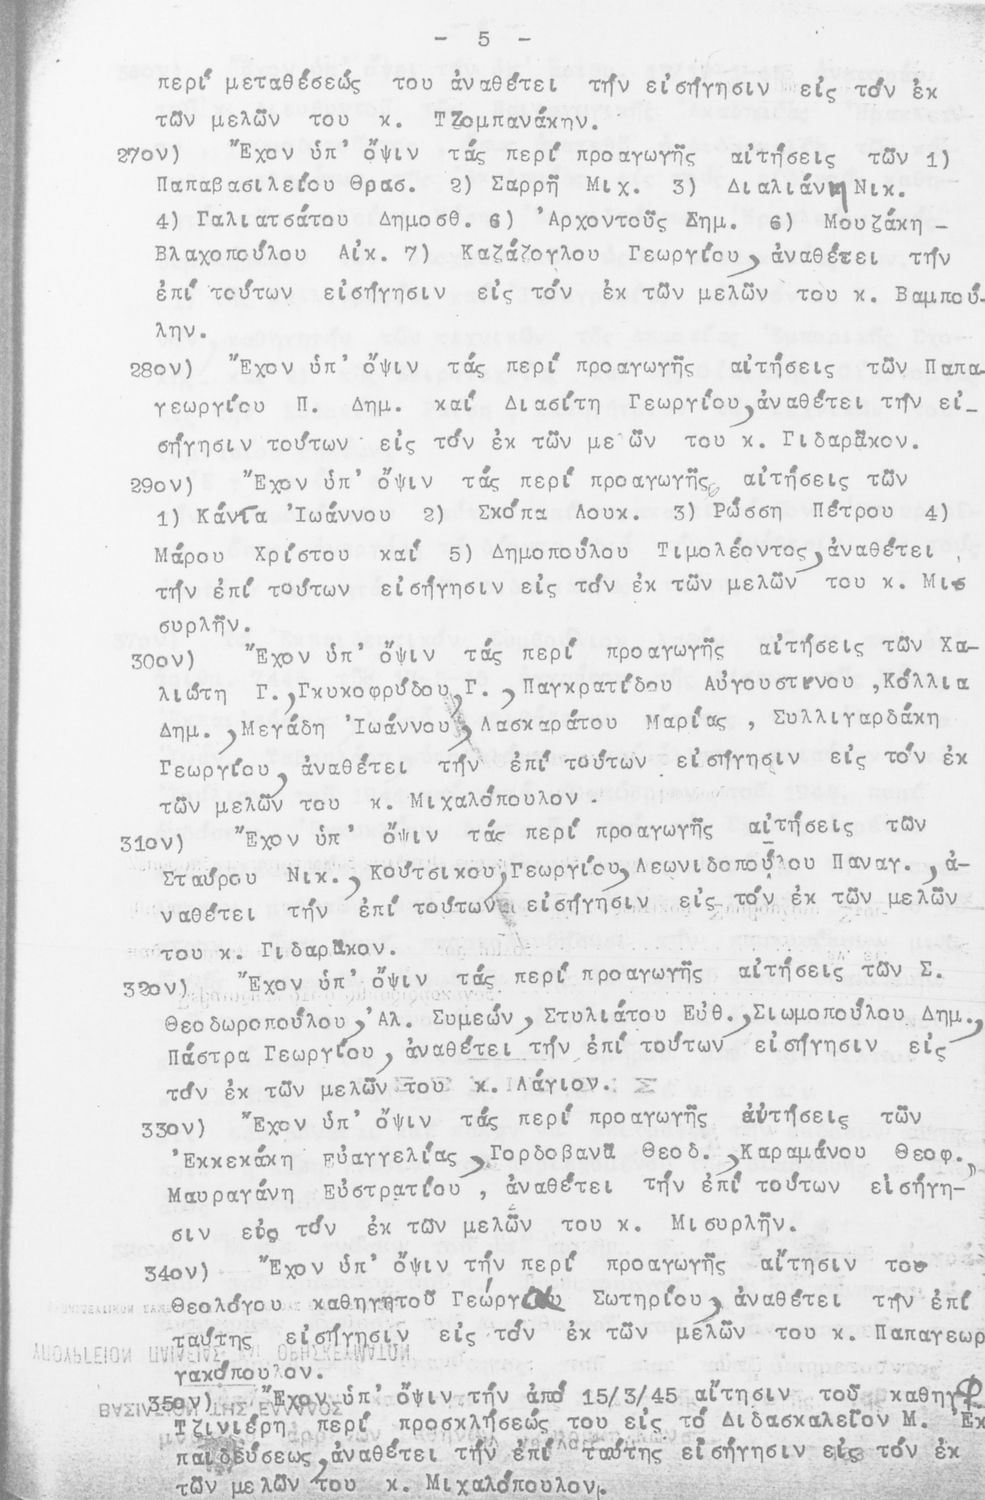 - 5 -
περί μεταθέσεώς του ἀναθέτει τήν εἰσήγησιν εἰς τόν ἐκ
τῶν μελῶν του κ. Τζομπανάκην.
27ον) Ἔχον ὑπ' ὄψιν τάς περί προαγωγῆς αἰτήσεις τῶν 1)
Παπαβασιλείου Θρασ. 2) Σαρρῆ Μιχ. 3) Διαλιάνη Νικ.
4) Γαλιατσάτου Δημοσθ. 6) Ἀρχοντοῦς Δημ. 6) Μουζάκη -
Βλαχοπούλου Αἰκ. 7) Καζάζογλου Γεωργίου, ἀναθέτει τήν
ἐπί τούτων εἰσήγησιν εἰς τόν ἐκ τῶν μελῶν του κ. Βαμπού-
λην.
28ον) Ἔχον ὑπ' ὄψιν τάς περί προαγωγῆς αἰτήσεις τῶν Παπα-
γεωργίου Π. Δημ. καί Διασίτη Γεωργίου, ἀναθέτει τήν εἰ-
σήγησιν τούτων εἰς τόν ἐκ τῶν με ῶν του κ. Γιδαρᾶκον.
29ον) Ἔχον ὑπ' ὄψιν τάς περί προαγωγῆς αἰτήσεις τῶν
1) Κάντα Ἰωάννου 2) Σκόπα Λουκ. 3) Ρώσση Πέτρου 4)
Μάρου Χρίστου καί 5) Δημοπούλου Τιμολέοντος, ἀναθέτει
τήν ἐπί τούτων εἰσήγησιν εἰς τόν ἐκ τῶν μελῶν του κ. Μισ
συρλῆν.
30ον) Ἔχον ὑπ' ὄψιν τάς περί προαγωγῆς αἰτήσεις τῶν Χα-
λιώτη Γ., Γκυκοφρύδου, Γ., Παγκρατίδου Αὐγουστίνου, Κόλλια
Δημ., Μεγάδη Ἰωάννου, Λασκαράτου Μαρίας, Συλλιγαρδάκη
Γεωργίου, ἀναθέτει τήν ἐπί τούτων εἰσήγησιν εἰς τόν ἐκ
τῶν μελῶν του κ. Μιχαλόπουλον.
31ον) Ἔχον ὑπ' ὄψιν τάς περί προαγωγῆς αἰτήσεις τῶν
Σταύρου Νικ., Κούτσικου, Γεωργίου, Λεωνιδοπούλου Παναγ., ἀ-
ναθέτει τήν ἐπί τούτων εἰσήγησιν εἰς τόν ἐκ τῶν μελῶν
του κ. Γιδαρᾶκον.
32ον) Ἔχον ὑπ' ὄψιν τάς περί προαγωγῆς αἰτήσεις τῶν Σ.
Θεοδωροπούλου, Ἀλ. Συμεών, Στυλιάτου Εὐθ., Σιωμοπούλου Δημ.,
Πάστρα Γεωργίου, ἀναθέτει τήν ἐπί τούτων εἰσήγησιν εἰς
τόν ἐκ τῶν μελῶν του κ. Λάγιον.
33ον) Ἔχον ὑπ' ὄψιν τάς περί προαγωγῆς αἰτήσεις τῶν
Ἐκκεκάκη Εὐαγγελίας, Γορδοβανᾶ Θεοδ., Καραμάνου Θεοφ.,
Μαυραγάνη Εὐστρατίου, ἀναθέτει τήν ἐπί τούτων εἰσήγη-
σιν εἰς τόν ἐκ τῶν μελῶν του κ. Μισυρλῆν.
34ον) Ἔχον ὑπ' ὄψιν τήν περί προαγωγῆς αἴτησιν του
Θεολόγου καθηγητοῦ Σωτηρίου, ἀναθέτει τήν ἐπί
ταύτης εἰσήγησιν εἰς τόν ἐκ τῶν μελῶν του κ. Παπαγεωρ
γακόπουλον.
35ον) Ἔχον ὑπ' ὄψιν τήν ἀπό 15/3/45 αἴτησιν τοῦ
Τζινιέρη περί προσκλήσεώς του εἰς τό Διδασκαλεῖον Μ. Ἐκ
παιδεύσεως, ἀναθέτει τήν ἐπί ταύτης εἰσήγησιν εἰς τόν ἐκ
τῶν μελῶν του κ. Μιχαλόπουλον.